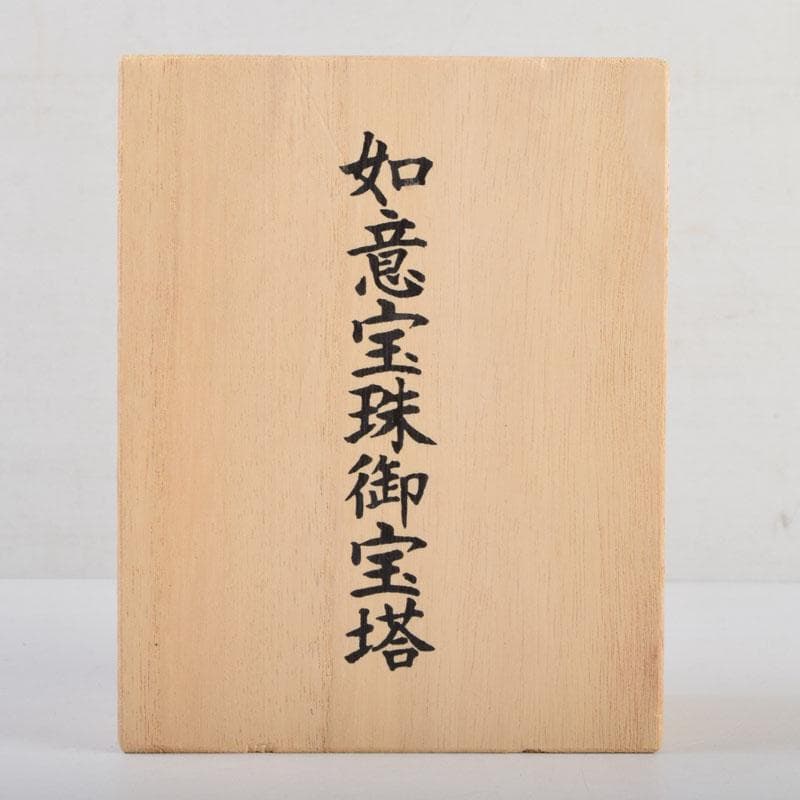 如意宝珠御宝塔